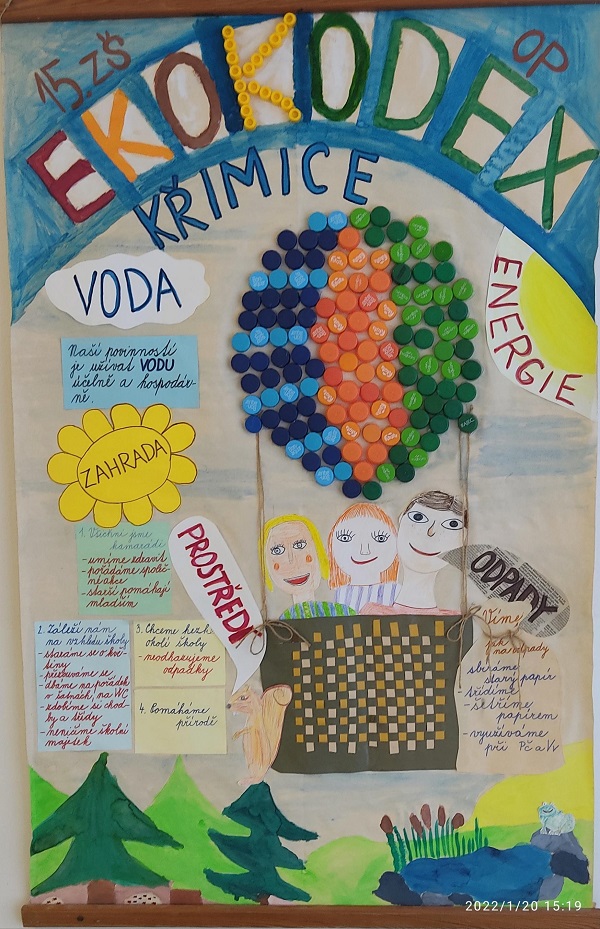 15. ZŠ
OP
EKOKODEX
KŘIMICE
VODA
Naší povinností
je užívat VODU
účelně a hospodár-
ně.
ENERGIE
ZAHRADA
1. Všichni jsme
kamarádi
- umíme zdravit
- pořádáme společ-
ní akce
- starší pomáhají
mladším
PROSTŘEDÍ
2. Záleží nám
na vzhledu školy
- staráme se o kvě-
tiny
- přezouváme se
- dbáme na pořádek
v šatnách, na WC
- zdobíme si chod-
by a třídy
- neničíme školní
majetek
3. Chceme hezké
okolí školy
- neodhazujeme
odpadky
4. Pomáháme
přírodě
ODPADY
Víme
jak
na odpady
- sbíráme
starý papír
- třídíme
- šetříme
papírem
- využíváme
při Pč a Vv
2022/1/20 15:19